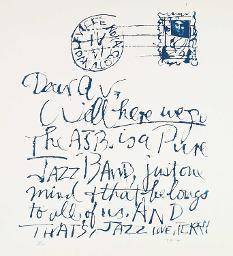 Dear A V,
Well here we go
The AJB. is a Pure
JAZZ BAND, just one
mind & that belongs
to all, of us. AND
THATS, JAZZ LOVE,